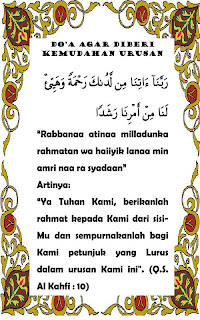 DO'A AGAR DIBERI
KEMUDAHAN URUSAN
رَبَّنَآ ءَاتِنَا مِن لَّدُنكَ رَحْمَةً وَهَيِّئْ
لَنَا مِنْ أَمْرِنَا رَشَدًا
"Rabbanaa atinaa milladunka
rahmatan wa haiiyik lanaa min
amri naa ra syadaan"
Artinya:
"Ya Tuhan Kami, berikanlah
rahmat kepada Kami dari sisi-
Mu dan sempurnakanlah bagi
Kami petunjuk yang Lurus
dalam urusan Kami ini". (Q.S.
Al Kahfi : 10)